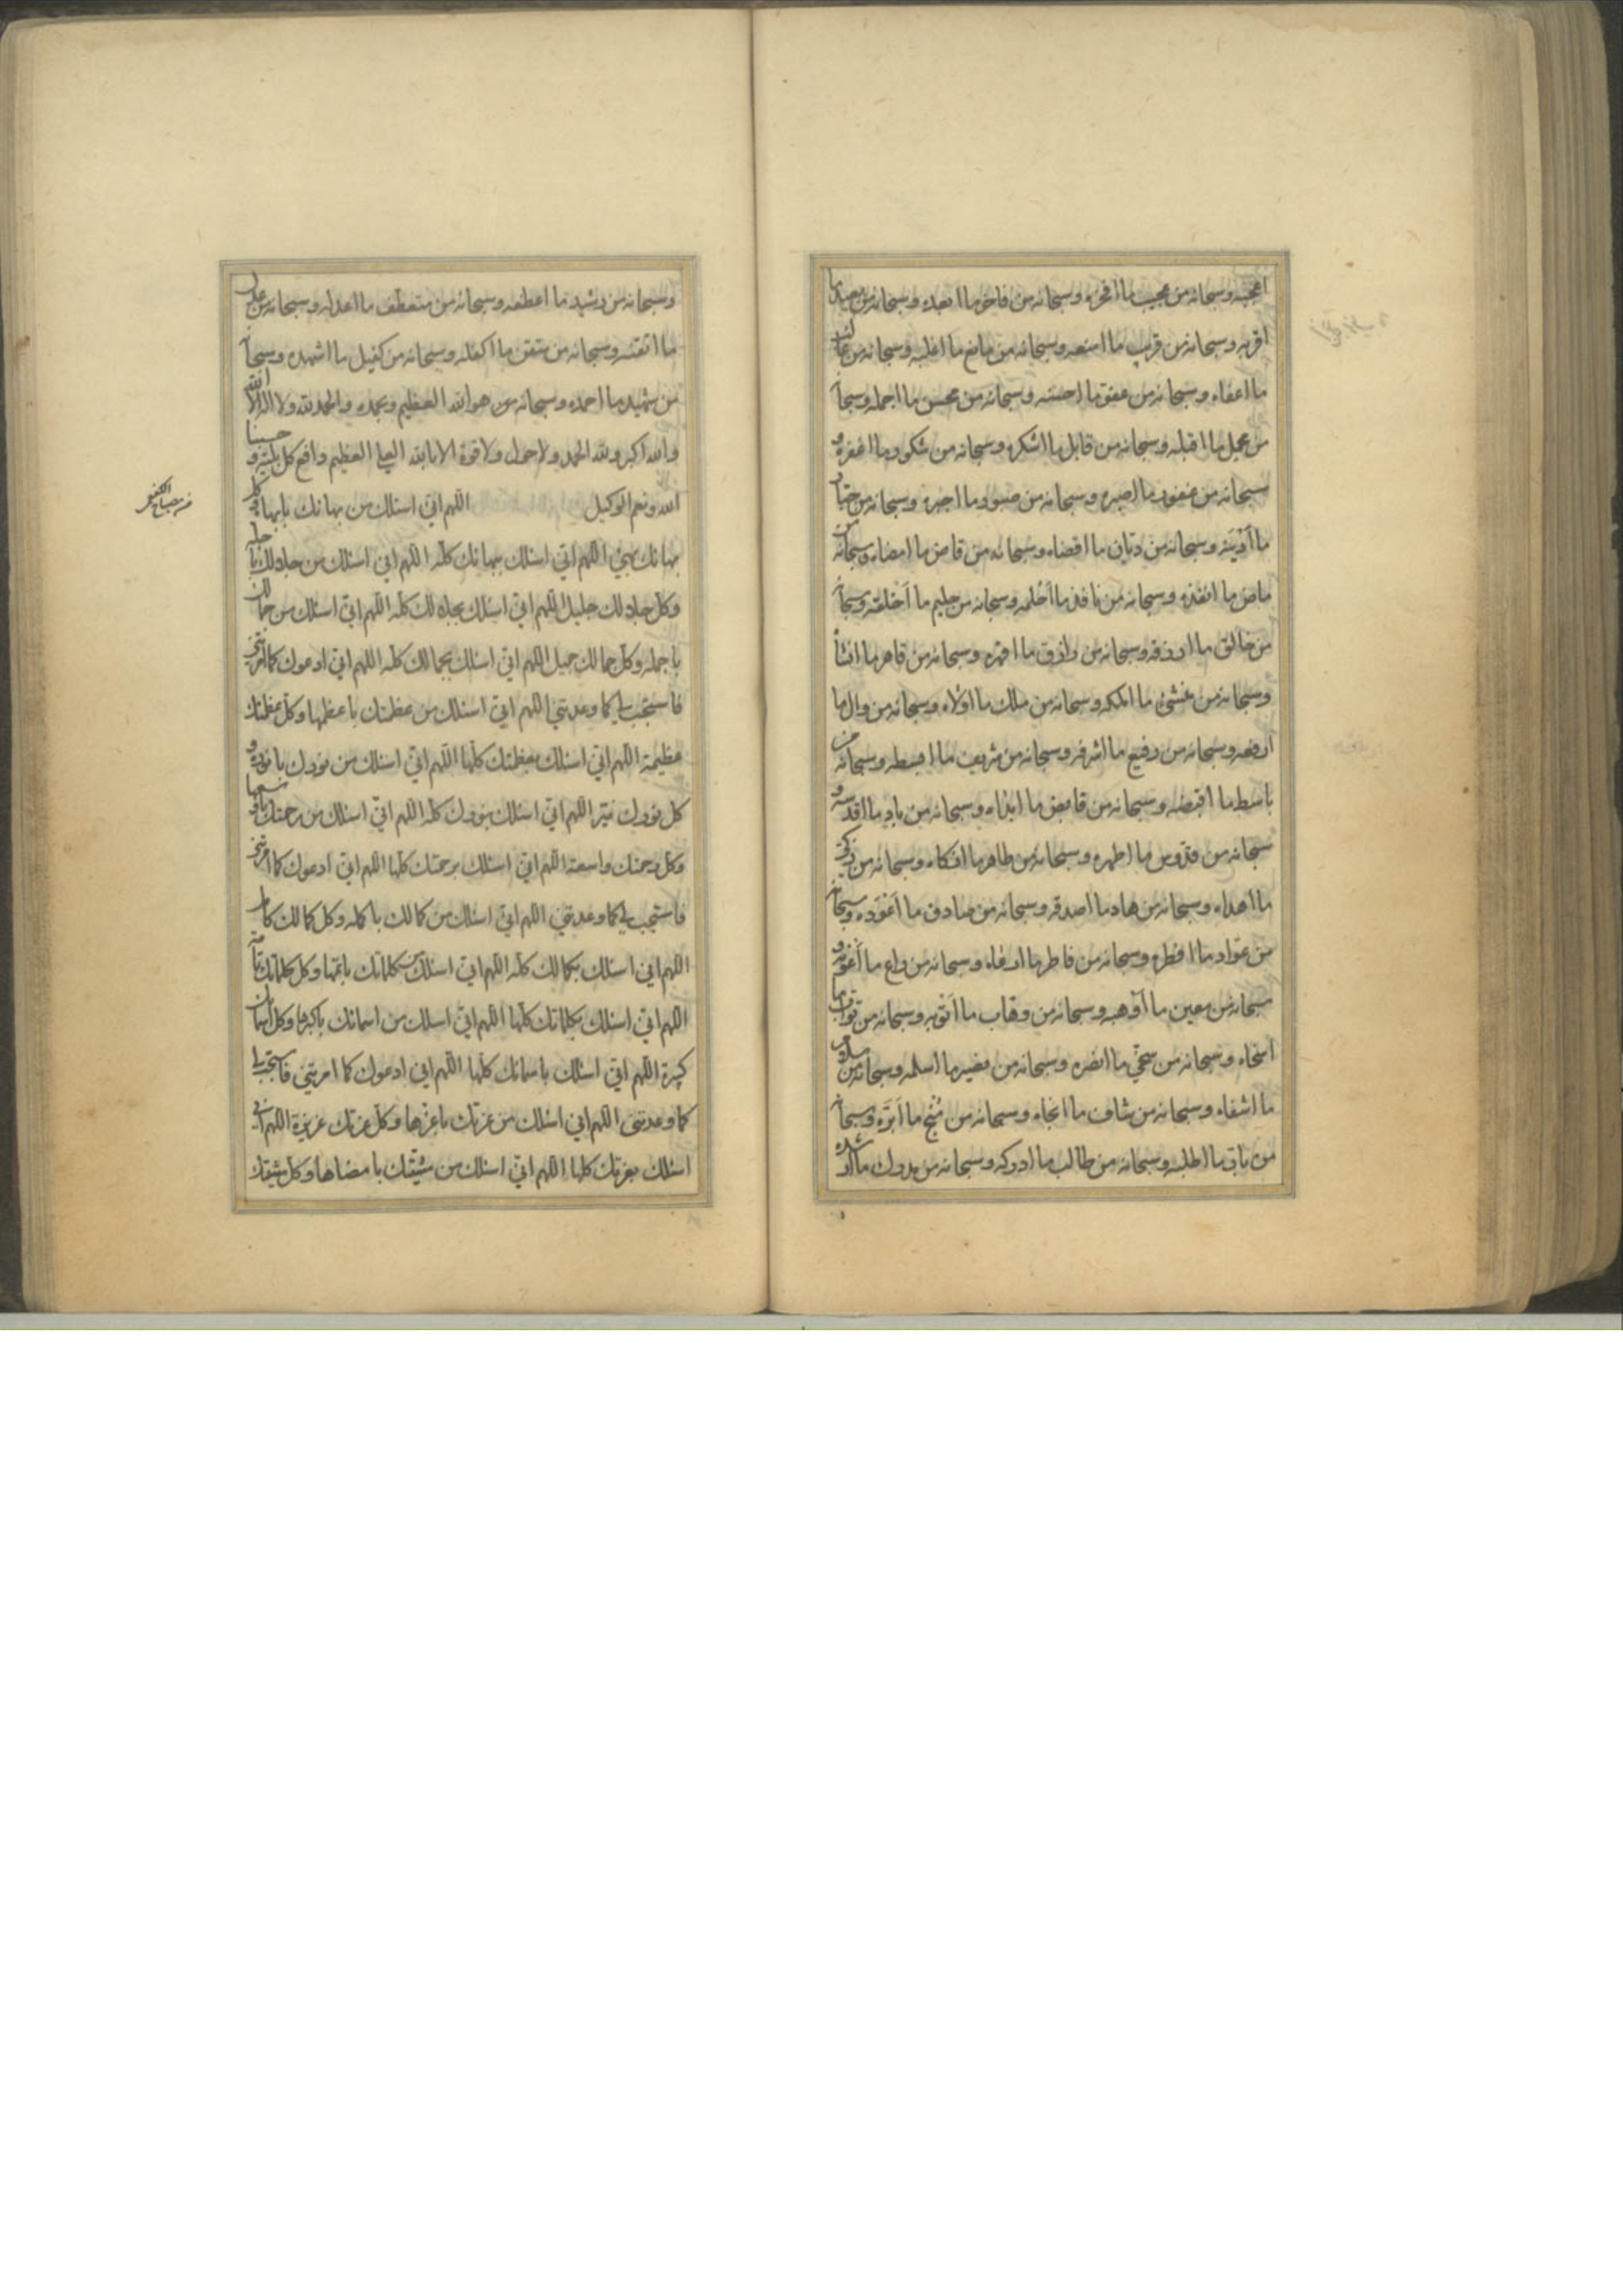 اعجبه وسبحانه من عجيب ما افخره وسبحانه من فاخر ما ابعده وسبحانه من بعيد ما
اقربه وسبحانه من قريب ما امنعه وسبحانه من مانع ما اغلبه وسبحانه من غالب
ما اعفاه وسبحانه من عفو ما احسنه وسبحانه من محسن ما اجمله وسبحا
من جميل ما اقبله وسبحانه من قابل ما اشكره وسبحانه من شكور ما اغفره و
سبحانه من غفور ما اصبره وسبحانه من صبور ما اجبره وسبحانه من جبار
ما ادينه وسبحانه من ديان ما اقضاه وسبحانه من قاض ما امضاه وسبحانه من
ماض ما انفذه وسبحانه من نافذ ما احلمه وسبحانه من حليم ما اخلقه وسبحا
من خالق ما ارزقه وسبحانه من رازق ما اقهره وسبحانه من قاهر ما انشأ
وسبحانه من منشئ ما املكه وسبحانه من ملك ما اولاه وسبحانه من وال ما
ارفعه وسبحانه من رفيع ما اشرفه وسبحانه من شريف ما ابسطه وسبحانه من
باسط ما اقبضه وسبحانه من قابض ما ابداه وسبحانه من باد ما اقدسه و
سبحانه من قدوس ما اطهره وسبحانه من طاهر ما ازكاه وسبحانه من زكي
ما اهداه وسبحانه من هاد ما اصدقه وسبحانه من صادق ما اعوده وسبحانه
من عواد ما افطره وسبحانه من فاطر ما ارعاه وسبحانه من راع ما اعونه و
سبحانه من معين ما اوهبه وسبحانه من وهاب ما اتوبه وسبحانه من تواب ما
اسخاه وسبحانه من سخي ما انصره وسبحانه من نصير ما اسلمه وسبحانه من سلام
ما اشفاه وسبحانه من شاف ما انجاه وسبحانه من منج ما ابره وسبحا
من بار ما اطلبه وسبحانه من طالب ما ادركه وسبحانه من مدرك ما ارشده
وسبحانه من رشيد ما اعطفه وسبحانه من متعطف ما اعدله وسبحانه من عدل
ما اتقنه وسبحانه من متقن ما اكفله وسبحانه من كفيل ما اشهده وسبحا
من شهيد ما احمده وسبحانه من هو الله العظيم وبحمده والحمد لله ولا اله الا الله
والله اكبر ولله الحمد ولا حول ولا قوة الا بالله العلي العظيم دافع كل بلية و حسبنا
الله ونعم الوكيل اللهم اني اسئلك من بهائك بابهاه وكل
من مصباح الكفعمي
بهائك بهي اللهم اني اسئلك ببهائك كله اللهم اني اسئلك من جلالك باجله
وكل جلالك جليل اللهم اني اسئلك بجلالك كله اللهم اني اسئلك من جمالك
باجمله وكل جمالك جميل اللهم اني اسئلك بجمالك كله اللهم اني ادعوك كما امرتني
فاستجب لي كما وعدتني اللهم اني اسئلك من عظمتك باعظمها وكل عظمتك
عظيمة اللهم اني اسئلك بعظمتك كلها اللهم اني اسئلك من نورك بانوره و
كل نورك نير اللهم اني اسئلك بنورك كله اللهم اني اسئلك من رحمتك باوسعها
وكل رحمتك واسعة اللهم اني اسئلك برحمتك كلها اللهم اني ادعوك كما امرتني
فاستجب لي كما وعدتني اللهم اني اسئلك من كمالك باكمله وكل كمالك كامل
اللهم اني اسئلك بكمالك كله اللهم اني اسئلك من كلماتك باتمها وكل كلماتك تامة
اللهم اني اسئلك بكلماتك كلها اللهم اني اسئلك من اسمائك باكبرها وكل اسمائك
كبيرة اللهم اني اسئلك باسمائك كلها اللهم اني ادعوك كما امرتني فاستجب لي
كما وعدتني اللهم اني اسئلك من عزتك باعزها وكل عزتك عزيزة اللهم اني
اسئلك بعزتك كلها اللهم اني اسئلك من مشيتك بامضاها وكل مشيتك